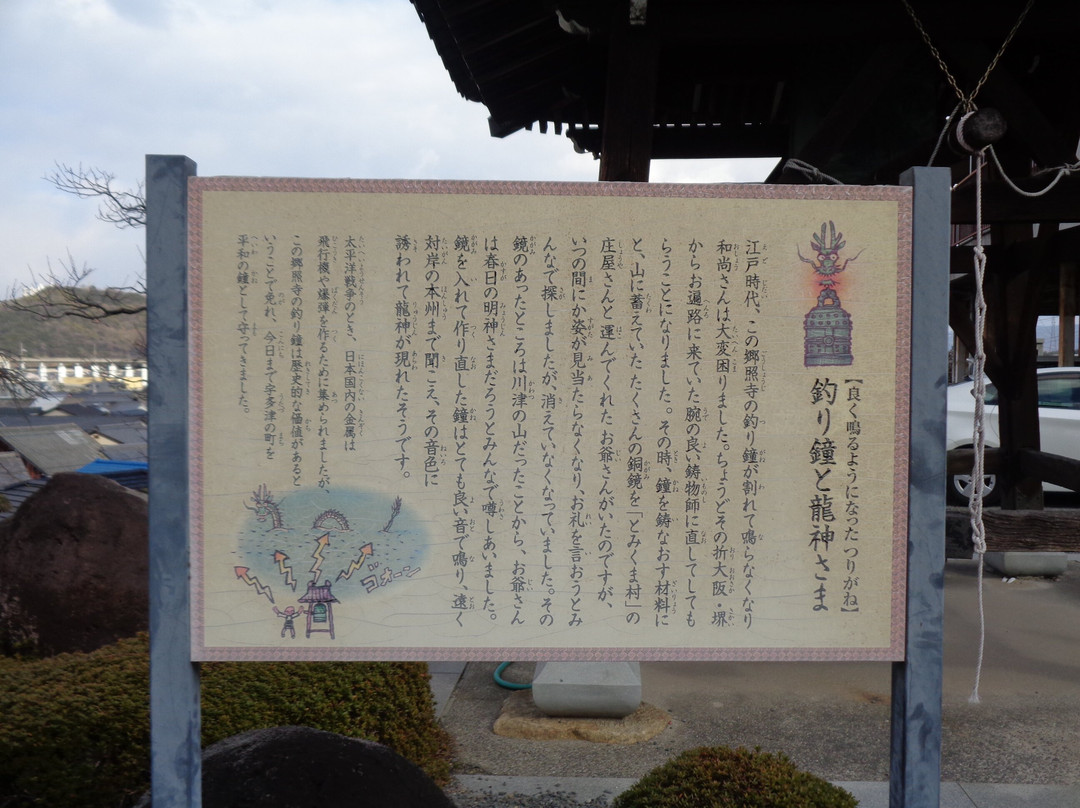 【良く鳴るようになったつりがね】
釣り鐘と龍神さま
江戸時代、この郷照寺の釣り鐘が割れて鳴らなくなり
和尚さんは大変困りました。ちょうどその折大阪・堺
からお遍路に来ていた腕の良い鋳物師に直してしても
らうことになりました。その時、鐘を鋳なおす材料に
と、山に蓄えていたたくさんの銅鏡を「とみくま村」の
庄屋さんと運んでくれたお爺さんがいたのですが、
いつの間にか姿が見当たらなくなり、お礼を言おうとみ
んなで探しましたが、消えていなくなっていました。その
鏡のあったところは川津の山だったことから、お爺さん
は春日の明神さまだろうとみんなで噂しあいました。
鏡を入れて作り直した鐘はとても良い音で鳴り、遠く
対岸の本州まで聞こえ、その音色に
誘われて龍神が現れたそうです。
太平洋戦争のとき、日本国内の金属は
飛行機や爆弾を作るために集められましたが、
この郷照寺の釣り鐘は歴史的な価値があると
いうことで免れ、今日まで宇多津の町を
平和の鐘として守ってきました。
ゴォーン